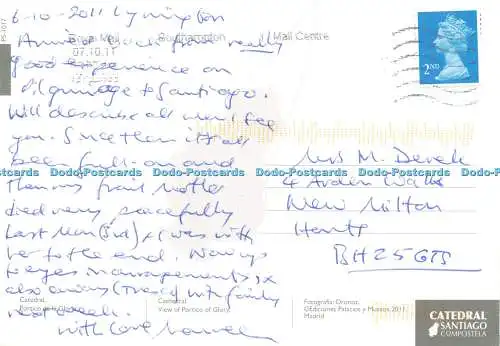 6-10-2011 Lymington
Arrived back from really
good experience on
pilgrimage to Santiago.
Will describe all when I see
you. Since then it's all
been full-on and
then my frail Mother
died very peacefully
Last Mon (3rd) & I was with
her to the end. Now
arrangements, &
also away with family
next week.
with love
Royal Mail
Southampton
Mail Centre
07.10.11
2ND
Mrs M. Derek
4 Arden Walk
New Milton
Hants
BH25
PS-1017
Catedral.
Pórtico de la Gloria
Cathedral
View of Portico of Glory.
Fotografía: Oronoz.
©Ediciones Palacios y Museos, 2011
Madrid
CATEDRAL
SANTIAGO
COMPOSTELA
Dodo-Postcards Dodo-Postcards Dodo-Postcards Dodo-Postcards